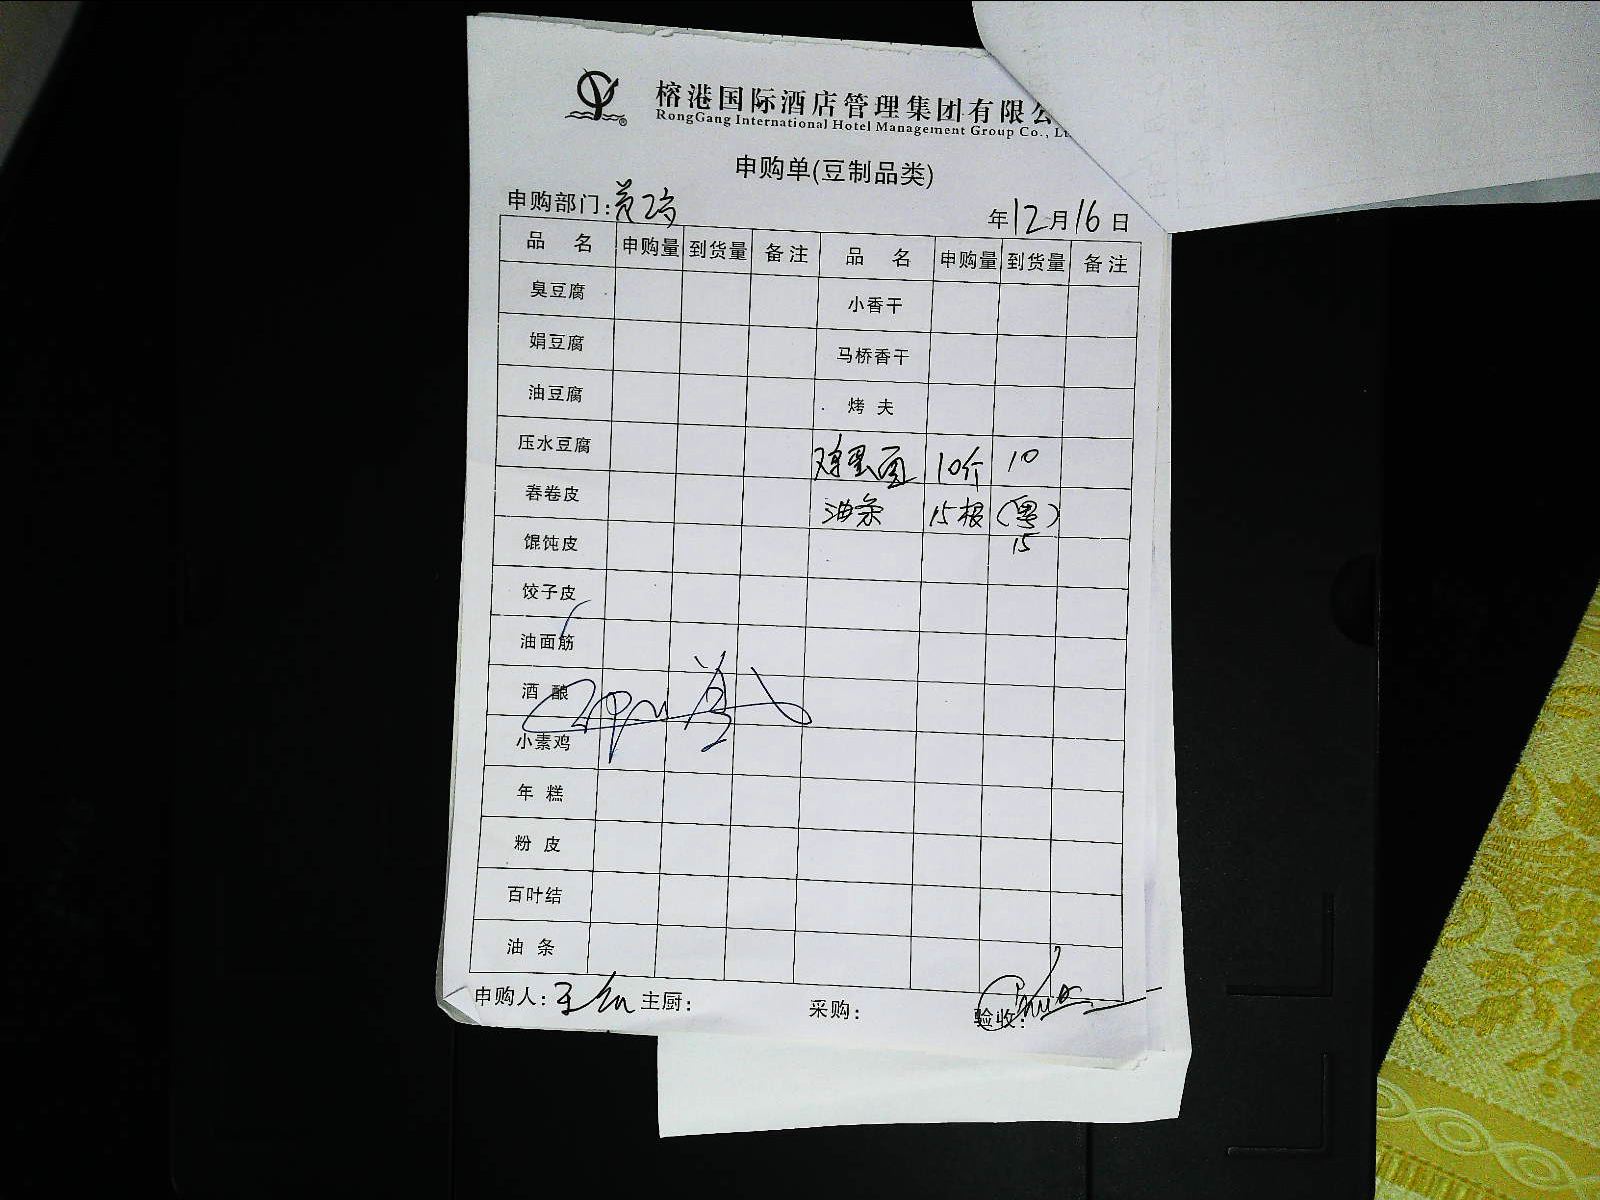 榕港国际酒店管理集团有限公
RongGang International Hotel Management Group Co., Lt
申购单(豆制品类)
申购部门:
年12月16日
品 名 申购量 到货量 备注 品 名 申购量 到货量 备注
臭豆腐 小香干
娟豆腐 马桥香干
油豆腐 烤夫
压水豆腐 鸡蛋面 10个 10
春卷皮 油条 15根 (粤)
馄饨皮 15
饺子皮
油面筋
酒酿
小素鸡
年糕
粉皮
百叶结
油条
申购人: 王 主厨: 采购: 验收: